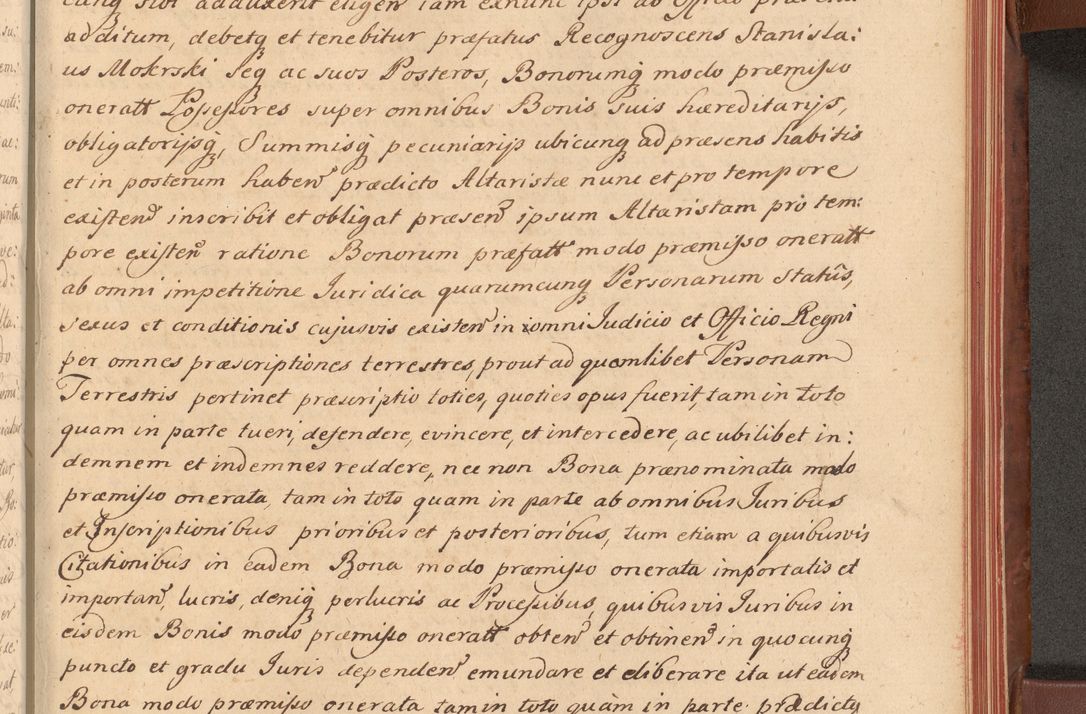 cunq̃ sibi adduxerit eligen̄ iam exnunc ipsi ab Officio
additum, debetq̃ et tenebitur præfatus Recognoscens Stanisla:
us Mokrski seq̃ ac suos Posteros, Bonorumq̃ modo præmisso
oneratt Possessores super omnibus Bonis suis hæreditarijs,
obligatorijsq̃, Summisq̃ pecuniarijs ubicunq̃ ad præsens habitis
et in posterum haben̄ prædicto Altaristæ nunc et pro tempore
existen̄ inscribit et obligat præsen̄ ipsum Altaristam pro tem:
pore existen̄ ratione Bonorum præfatt modo præmisso oneratt
ab omni impetitione Juridica quarumcunq̃ Personarum statûs,
sexus et conditionis cujusvis existen̄ in omni Judicio et Officio Regni
per omnes præscriptiones terrestres, prout ad quamlibet Personam
Terrestris pertinet præscriptio toties, quoties opus fuerit, tam in toto
quam in parte tueri, defendere, evincere, et intercedere, ac ubilibet in:
demnem et indemnes reddere, nec non Bona prænominata modo
præmisso onerata, tam in toto quam in parte ab omnibus Juribus
et Inscriptionibus prioribus et posterioribus, tum etiam a quibusvis
Citationibus in eadem Bona modo præmisso onerata importatis et
importan̄, lucris, deniq̃ perlucris ac Processibus, quibusvis Juribus in
eisdem Bonis modo præmisso oneratt obten̄ et obtinen̄ in quocunq̃
puncto et gradu Juris dependen̄ emundare et eliberare ita ut eadem
Bona modo præmisso onerata tam in toto quàm in parte prædictq